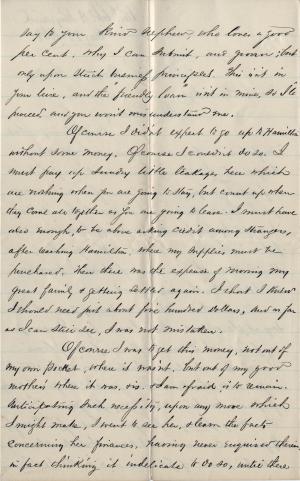 say to your kind nephew, who loves a good
per cent. Why I can submit, and groan; but
only upon strict business principles. This isn't in
your line, and the "friendly loan" isn't in mine, so I'll
proceed, and you won't misunderstand me.
Of course I didn't expect to go up to Hamilton
without some money. Of course I couldn't do so. I
must pay up sundry little leakages here which
are nothing when you are going to stay, but count up when
they come all together as you are going to leave. I must have
also enough, to be above asking credit among strangers,
after reaching Hamilton, where my supplies must be
purchased. Then there was the expense of moving my
great family & getting settled again. In short I knew
I should need just about five hundred dollars, and as far
as I can still see, I was not mistaken.
Of course I was to get this money, not out of
my own pocket, where it wasn't, but out of my good
mother's where it was, & is, & I am afraid, is to remain.
Anticipating such necessity, upon any move which
I might make, I went to see her, & learn the facts
concerning her finances, having never enquired therein,
in fact thinking it indelicate to do so, until there